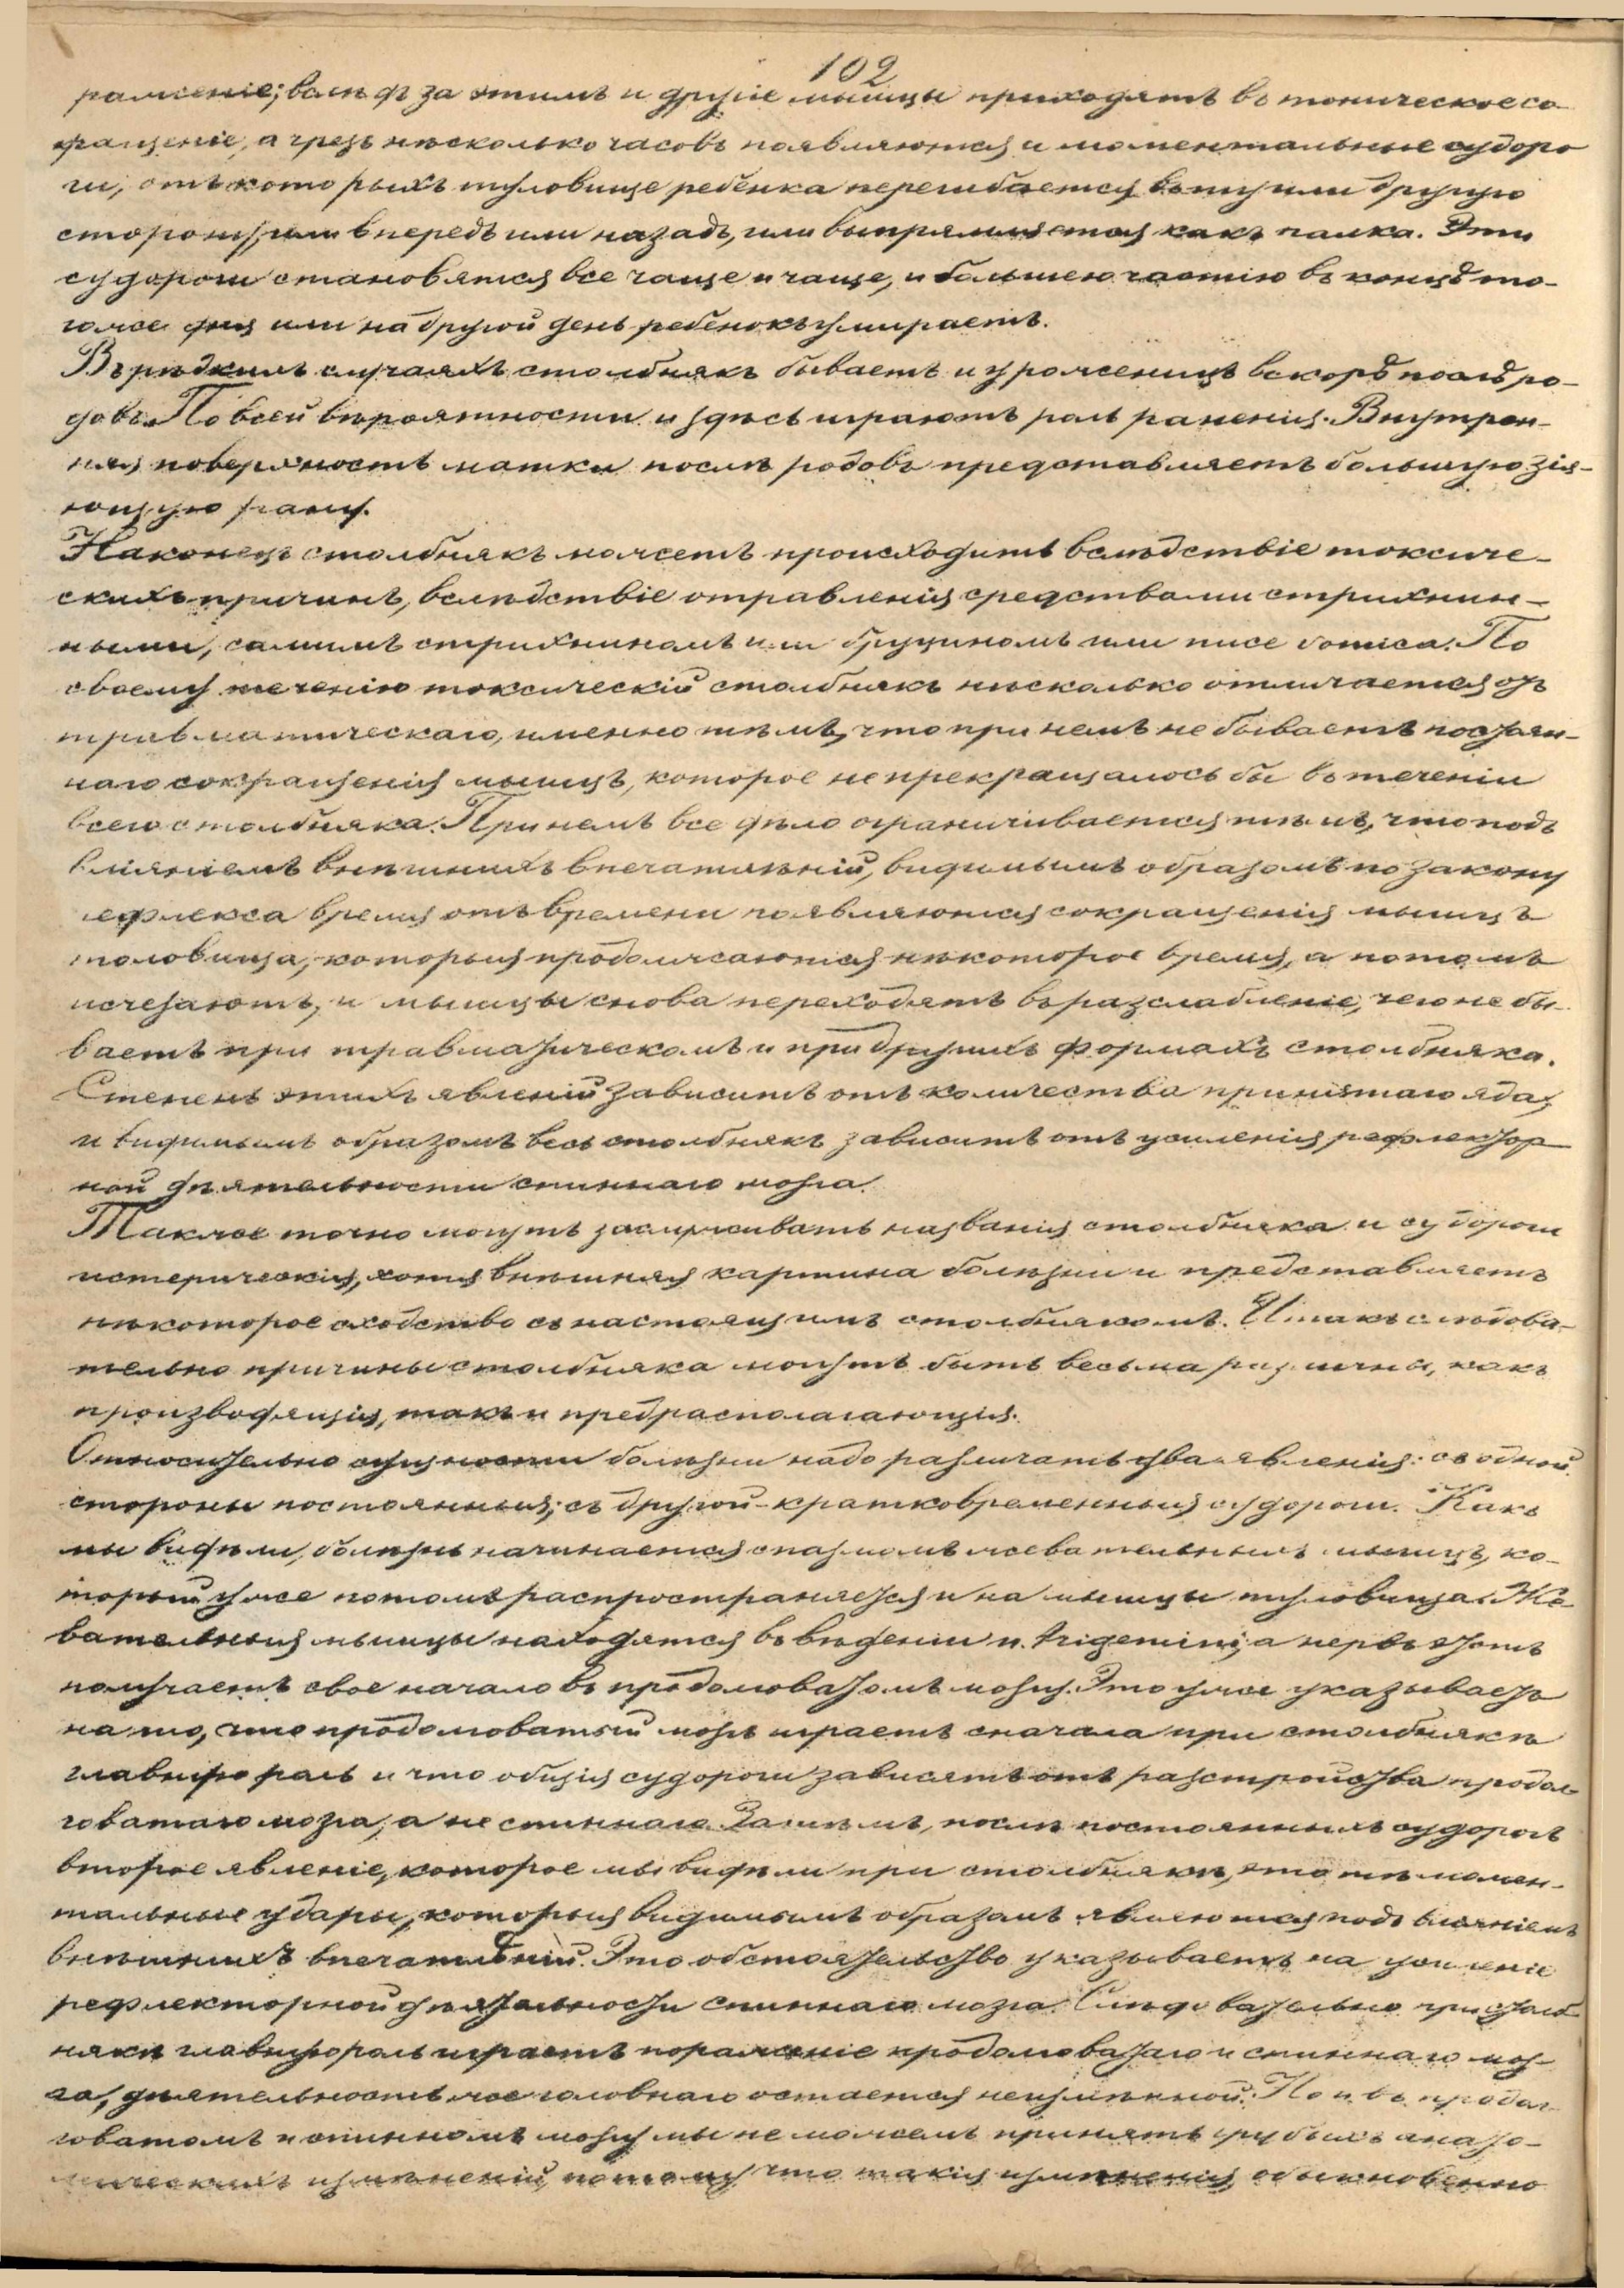 102
раженіе; вслѣдъ за этимъ и другіе мышцы приходятъ въ тоническое со-
кращеніе, а чрезъ нѣсколько часовъ появляются и моментальные судоро
ги, отъ которыхъ туловище ребенка перегибается въ ту или другую
сторону, или впередъ или назадъ, или выпрямляется какъ палка. Эти
судороги становятся все чаще и чаще, и большею частію въ концѣ то-
гоже дня или на другой день ребенокъ умираетъ.
Въ рѣдкихъ случаяхъ столбнякъ бываетъ и у роженицъ вскорѣ послѣ ро-
довъ. По всей вѣроятности и здѣсь играютъ роль раненія. Внутрен-
няя поверхность матки послѣ родовъ представляетъ большую зія-
ющую рану.
Наконецъ столбнякъ можетъ происходить вслѣдствіе токсиче-
скихъ причинъ, вслѣдствіе отравленія средствами стрихнин-
ными, самимъ стрихниномъ или бруциномъ или nuce vomica. По
своему теченію токсическій столбнякъ нѣсколько отличается отъ
травматическаго, именно тѣмъ, что при немъ не бываетъ постоян-
наго сокращенія мышцъ, которое не прекращалось бы въ теченіи
всего столбняка. При немъ все дѣло ограничивается тѣмъ, что подъ
вліяніемъ внѣшнихъ впечатлѣній, видимымъ образомъ по закону
рефлекса время отъ времени появляются сокращенія мышцъ
туловища, которыя продолжаются нѣкоторое время, а потомъ
исчезаютъ, и мышцы снова переходятъ въ разслабленіе, чего не бы-
ваетъ при травматическомъ и при другихъ формахъ столбняка.
Степень этихъ явленій зависитъ отъ количества принятаго яда,
и видимымъ образомъ весь столбнякъ зависитъ отъ усиленія рефлектор
ной дѣятельности спиннаго мозга.
Также точно могутъ заслуживать названія столбняка и судороги
истерическія, хотя внѣшняя картина болѣзни и представляетъ
нѣкоторое сходство съ настоящимъ столбнякомъ. Итакъ слѣдова-
тельно причины столбняка могутъ быть весьма различны, какъ
производящія, такъ и предрасполагающія.
Относительно сущности болѣзни надо различать два явленія: съ одной
стороны постоянныя, съ другой-кратковременныя судороги. Какъ
мы видѣли, болѣзнь начинается спазмомъ жевательныхъ мышцъ, ко-
торый уже потомъ распространяется и на мышцы туловища. Же-
вательныя мышцы находятся въ вѣденіи n. trigemini, а нервъ этотъ
получаетъ свое начало въ продолговатомъ мозгу. Это уже указываетъ
на то, что продолговатый мозгъ играетъ сначала при столбнякѣ
главную роль и что общія судороги зависятъ отъ разстройства продол-
говатаго мозга, а не спиннаго. Затѣмъ, послѣ постоянныхъ судорогъ
второе явленіе, которое мы видѣли при столбнякѣ, это тѣ момен-
тальные удары, которыя видимымъ образомъ являются подъ вліяніемъ
внѣшнихъ впечатлѣній. Это обстоятельство указываетъ на усиленіе
рефлекторной дѣятельности спиннаго мозга. Слѣдовательно при столб
някѣ главную роль играетъ пораженіе продолговатаго и спиннаго моз-
га, дѣятельность же головнаго остается неизмѣнной. Но и въ продол-
говатомъ и спинномъ мозгу мы не можемъ принять грубыхъ анато-
мическихъ измѣненій, потому что такія измѣненія обыкновенно